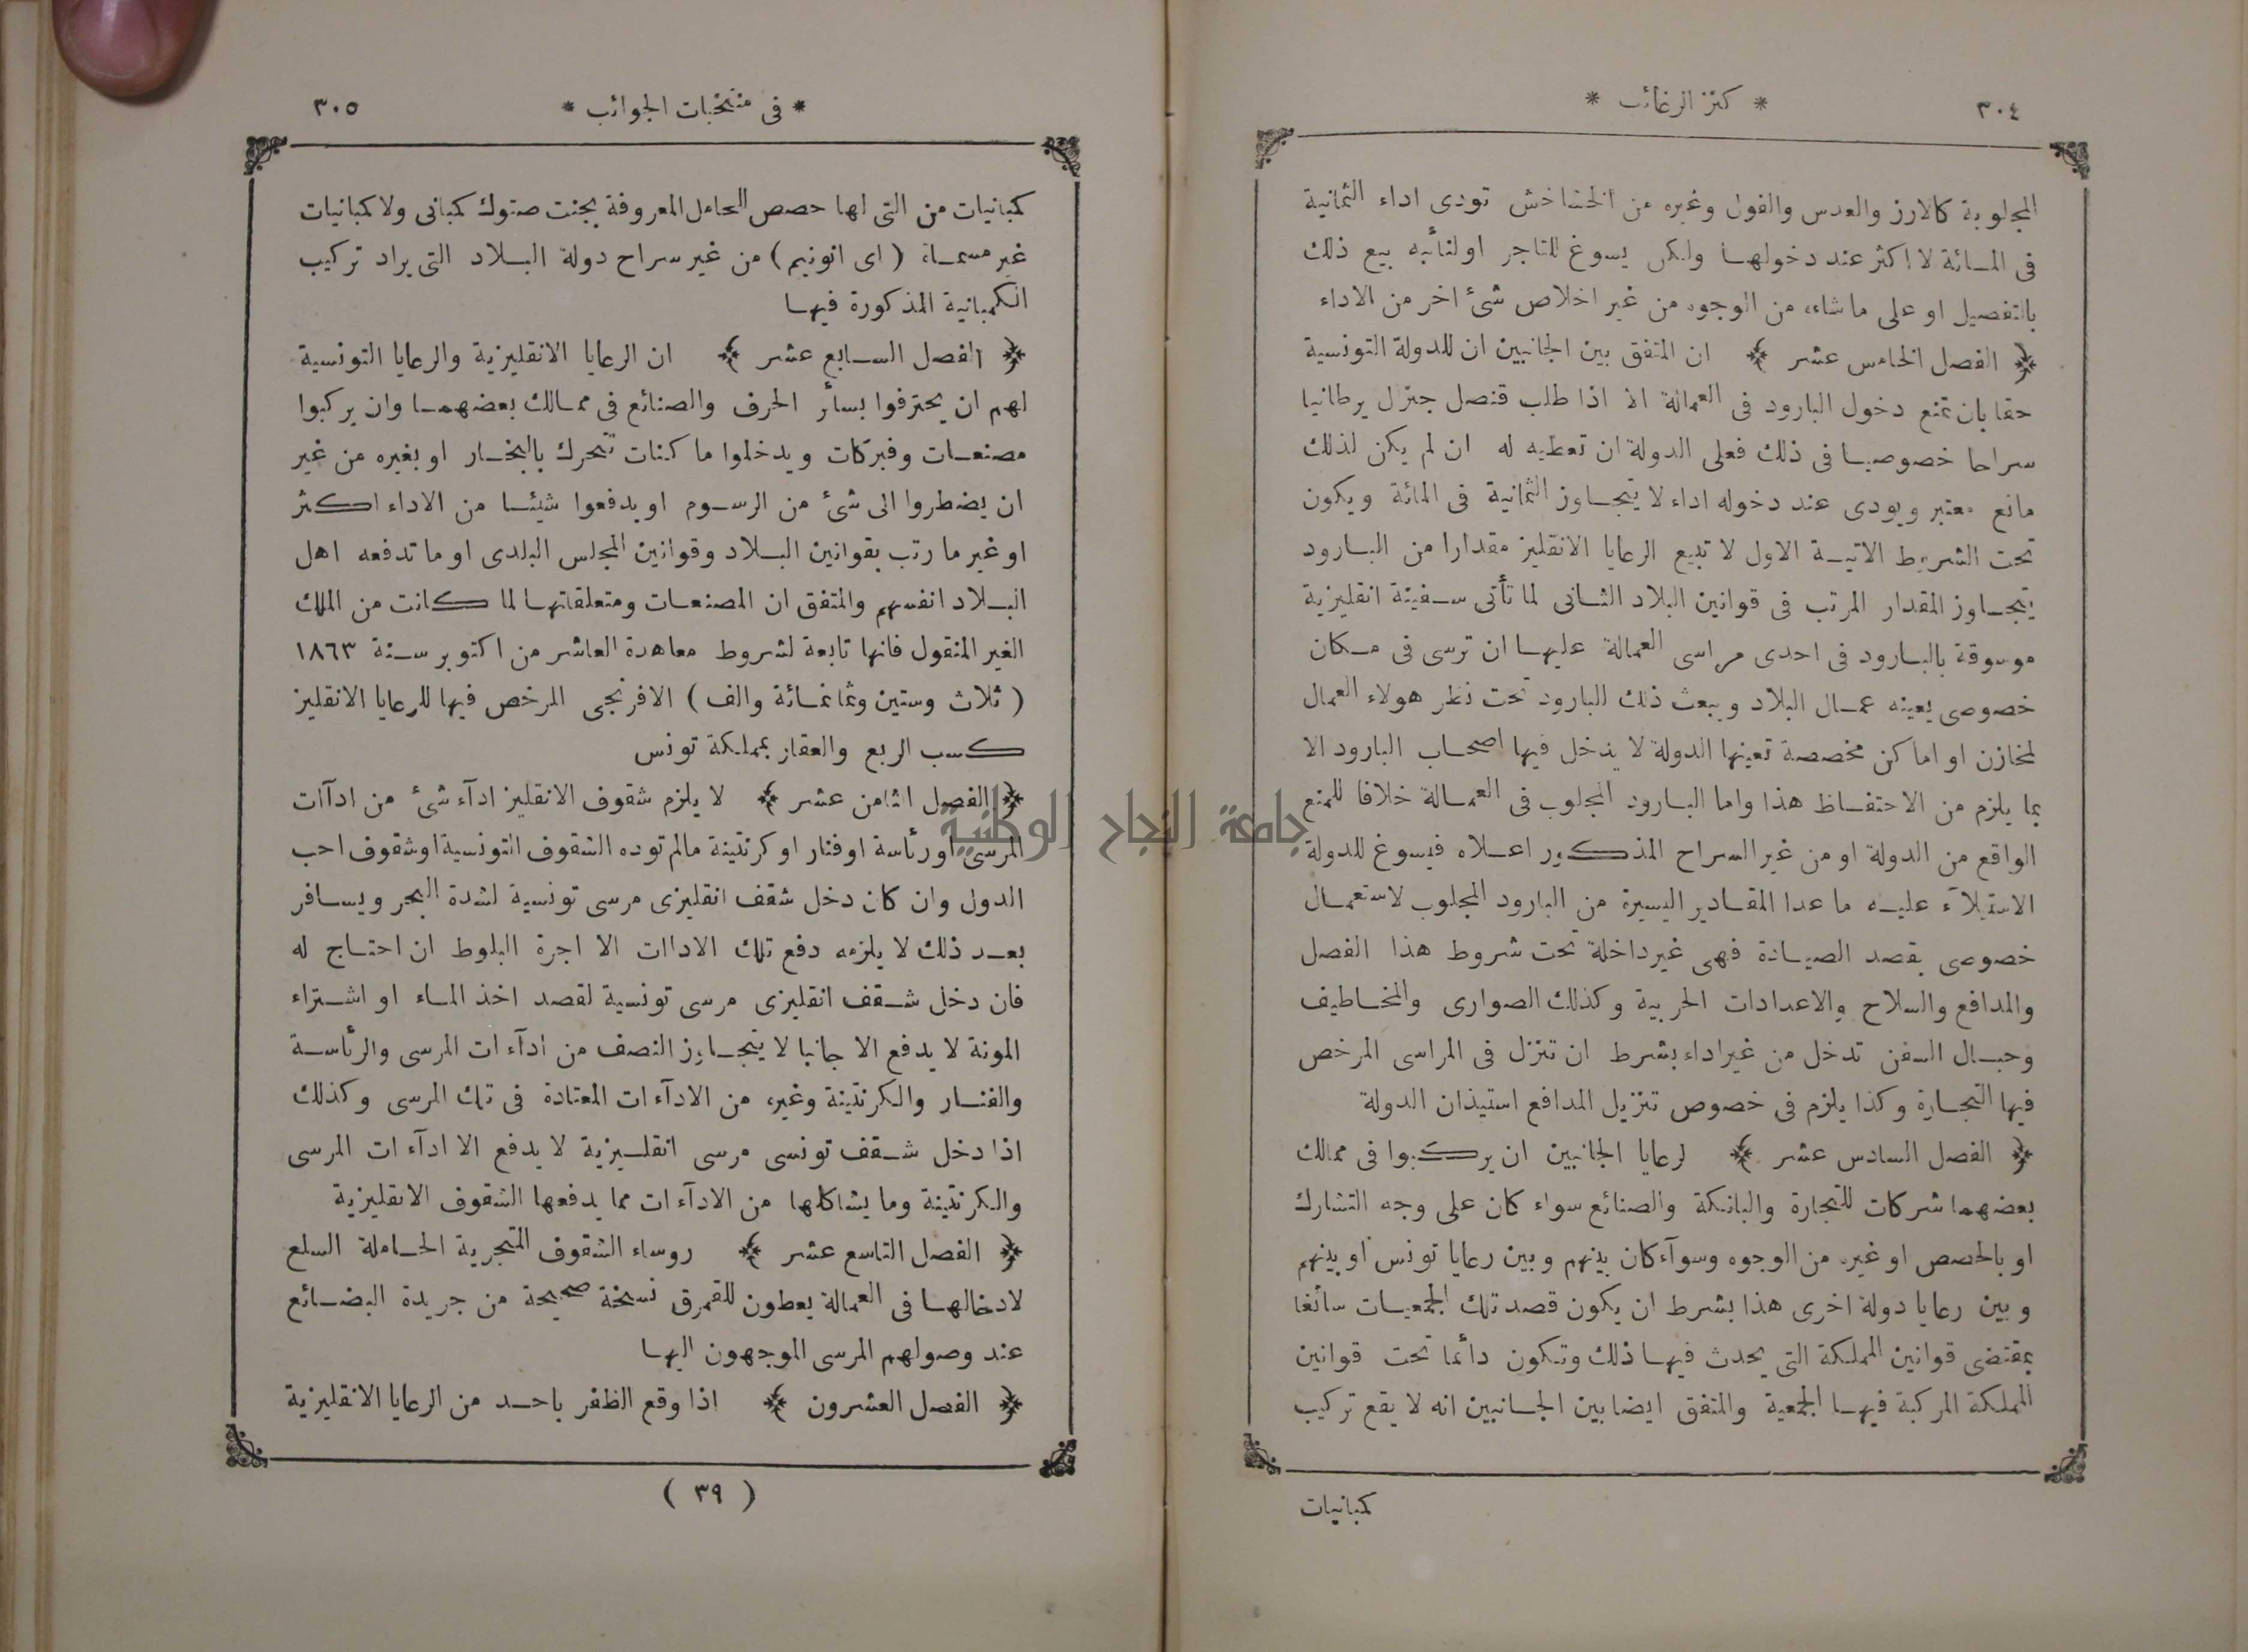 ٣٠٤
* كنز الرغائب *
المجلوبة كالارز والعدس والفول وغيره من الخشاخش تودى اداء الثمانية
فى المائة لا اكثر عند دخولها ولكن يسوغ للتاجر او لنائبه بيع ذلك
بالتفصيل او على ماشاء من الوجوه من غير اخلاص شئ اخر من الاداء
﴿ الفصل الخامس عشر ﴾ ان المتفق بين الجانبين ان للدولة التونسية
حقا بان تمنع دخول البارود فى العمالة الا اذا طلب قنصل جنرل بريطانيا
سراحا خصوصيا فى ذلك فعلى الدولة ان تعطيه له ان لم يكن لذلك
مانع معتبر ويودى عند دخوله اداء لا يتجاوز الثمانية فى المائة ويكون
تحت الشروط الاتية الاول لا تبيع الرعايا الانقليز مقدارا من البارود
يتجاوز المقدار المرتب فى قوانين البلاد الثانى لما تأتى سفينة انقليزية
موسوقة بالبارود فى احدى مراسى العمالة عليها ان ترسى فى مكان
خصوصى يعينه عمال البلاد ويبعث ذلك البارود تحت نظر هولاء العمال
لمخازن او اماكن مخصصة تعينها الدولة لا يدخل فيها اصحاب البارود الا
بما يلزم من الاحتفاظ هذا واما البارود المجلوب فى العمالة خلافا للمنع
الواقع من الدولة او من غير السراح المذكور اعلاه فيسوغ للدولة
الاستيلآء عليه ما عدا المقادير اليسيرة من البارود المجلوب لاستعمال
خصوصى بقصد الصيادة فهى غير داخلة تحت شروط هذا الفصل
والمدافع والسلاح والاعدادات الحربية وكذلك الصوارى والمخاطيف
وحبال السفن تدخل من غير اداء بشرط ان تنزل فى المراسى المرخص
فيها التجارة وكذا يلزم فى خصوص تنزيل المدافع استيذان الدولة
﴿ الفصل السادس عشر ﴾ لرعايا الجانبين ان يركبوا فى ممالك
بعضهما شركات للتجارة والبانكة والصنائع سواء كان على وجه التشارك
او بالحصص او غيره من الوجوه وسوآء كان بينهم وبين رعايا تونس او بينهم
وبين رعايا دولة اخرى هذا بشرط ان يكون قصد تلك الجمعيات سائغا
بمقتضى قوانين المملكة التى يحدث فيها ذلك وتكون دائما تحت قوانين
المملكة المركبة فيها الجمعية والمتفق ايضا بين الجانبين انه لا يقع تركيب
كمبانيات
* فى منتخبات الجوائب *
٣٠٥
كمبانيات من التى لها حصص الحامل المعروفة بجنت صتوك كمبانى ولا كمبانيات
غير مسماة ( اى انونيم ) من غير سراح دولة البلاد التى يراد تركيب
الكمبانية المذكورة فيها
﴿ الفصل السابع عشر ﴾ ان الرعايا الانقليزية والرعايا التونسية
لهم ان يحترفوا بسائر الحرف والصنائع فى ممالك بعضهما وان يركبوا
مصنعات وفبركات ويدخلوا ماكنات تتحرك بالبخار او بغيره من غير
ان يضطروا الى شئ من الرسوم او يدفعوا شيئا من الاداء اكثر
او غير ما رتب بقوانين البلاد وقوانين المجلس البلدى او ما تدفعه اهل
البلاد انفسهم والمتفق ان المصنعات ومتعلقاتها لما كانت من الملك
الغير المنقول فانها تابعة لشروط معاهدة العاشر من اكتوبر سنة ١٨٦٣
( ثلاث وستين وثمانمائة والف ) الافرنجى المرخص فيها للرعايا الانقليز
كسب الربع والعقار بمملكة تونس
﴿ الفصل الثامن عشر ﴾ لا يلزم شقوف الانقليز ادآء شئ من ادآات
المرسى او رئاسة او فنار او كرنتينة مالم توده الشقوف التونسية او شقوف احب
الدول وان كان دخل شقف انقليزى مرسى تونسية لشدة البحر ويسافر
بعد ذلك لا يلزمه دفع تلك الاداات الا اجرة البلوط ان احتاج له
فان دخل شقف انقليزى مرسى تونسية لقصد اخذ الماء او اشتراء
المونة لا يدفع الا جانبا لا يتجاوز النصف من ادآءات المرسى والرئاسة
والفنار والكرنتينة وغيره من الادآءات المعتادة فى تلك المرسى وكذلك
اذا دخل شقف تونسى مرسى انقليزية لا يدفع الا ادآءات المرسى
والكرنتينة وما يشاكلها من الادآءات مما يدفعها الشقوف الانقليزية
﴿ الفصل التاسع عشر ﴾ روساء الشقوف المتجرية الحاملة السلع
لادخالها فى العمالة يعطون للقمرق نسخة صحيحة من جريدة البضائع
عند وصولهم المرسى الموجهون اليها
﴿ الفصل العشرون ﴾ اذا وقع الظفر باحد من الرعايا الانقليزية
( ٣٩ )
جامعة النجاح الوطنية